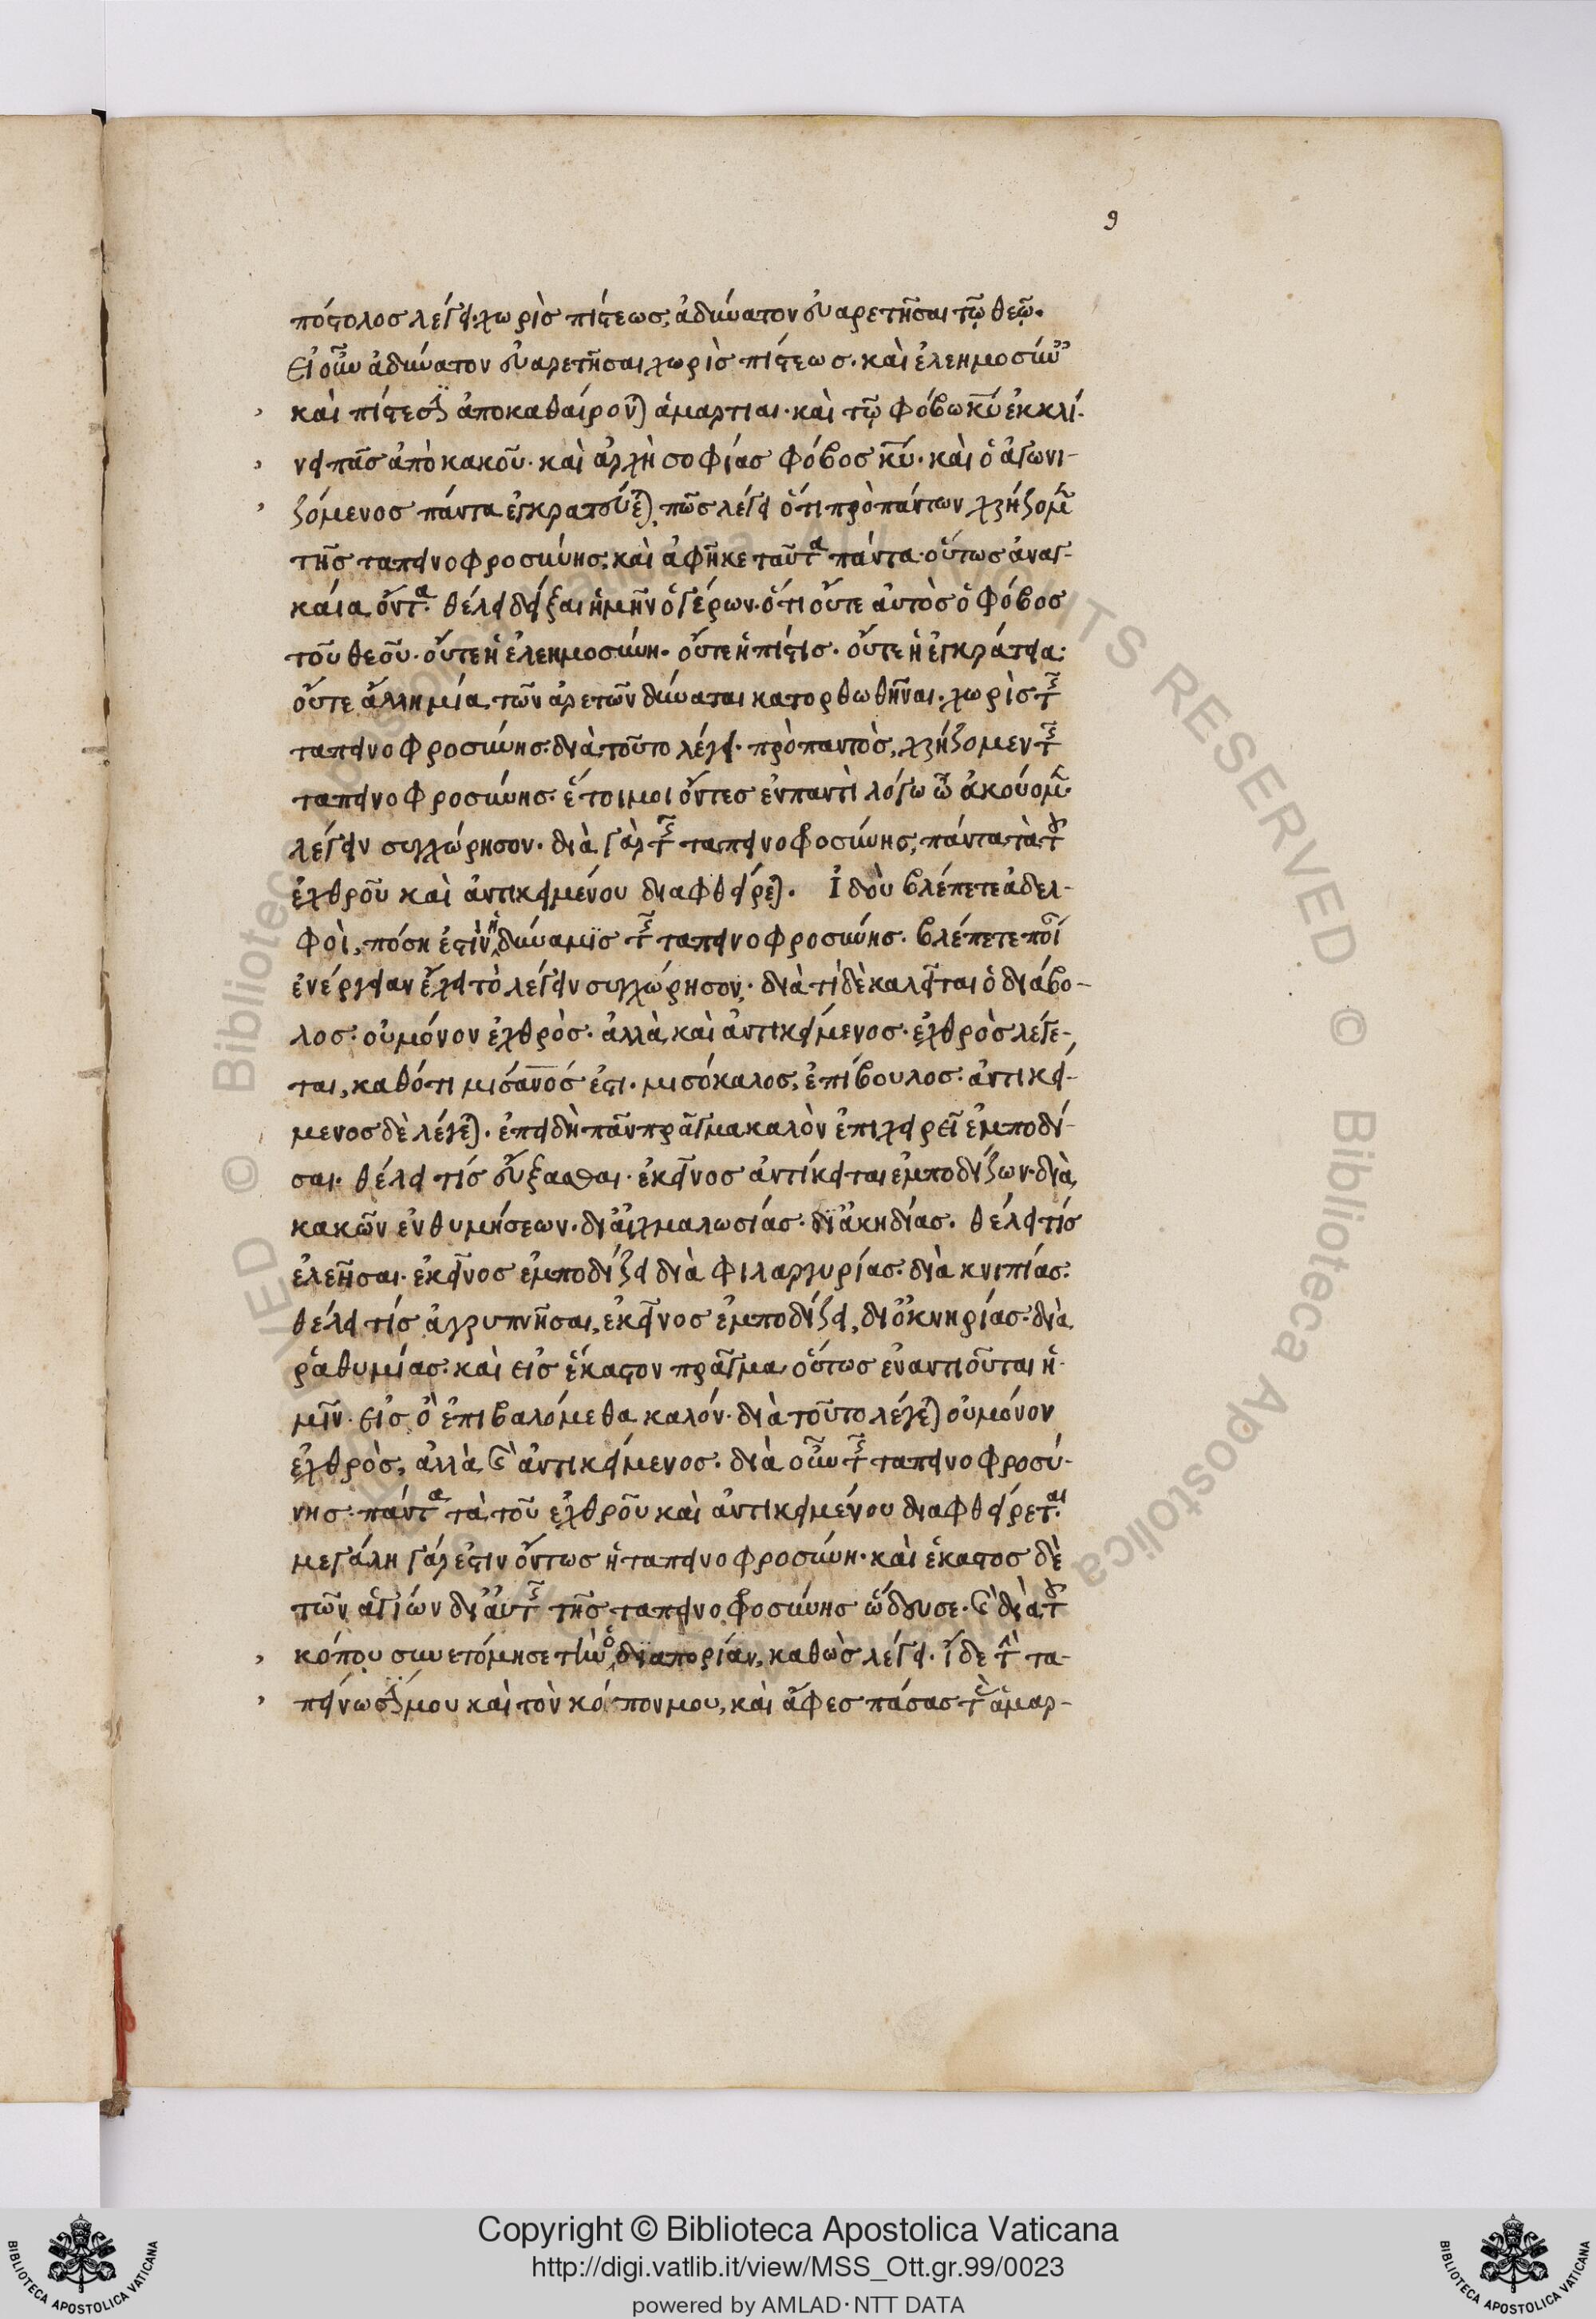 9
πόστολος λέγει· χωρὶς πίστεως, ἀδύνατον εὐαρετῆσαι τῷ θεῷ.
Εἰ οὖν ἀδύνατον εὐαρετῆσαι χωρὶς πίστεως. καὶ ἐλεημοσύν
καὶ πίστεσϊν ἀποκαθαίρον) ἁμαρτιαι. καὶ τῷ φόβω κ̅υ̅ ἐκκλί-
νει πᾶς ἀπὸ κακοῦ. καὶ ἀρχὴ σοφίας φόβος κ̅υ̅. καὶ ὁ ἀγωνι-
ζόμενος πάντα ἐγκρατεύε), πῶς λέγει ὅτι πρὸ πάντων χρήζομ
τῆς ταπεινοφροσύνης, καὶ ἀφῆκε ταῦτα πάντα οὕτως ἀναγ-
καία ὄντα. θέλει δεῖξαι ἡμῖν ὁ γέρων. ὅτι οὔτε αὐτὸς ὁ φόβος
τοῦ θεοῦ. οὔτε ἡ ἐλεημοσύνη. οὔτε ἡ πίστις. οὔτε ἡ ἐγκράτεια·
οὔτε ἄλλη μία τῶν ἀρετῶν δύναται κατορθωθῆναι. χωρὶς τῆς
ταπεινοφροσύνης. διὰ τοῦτο λέγει· πρὸ παντὸς, χρήζομεν τῆς
ταπεινοφροσύνης. ἕτοιμοι ὄντες ἐν παντὶ λόγω ὧ ἀκούομ.
λέγειν συγχώρησον. διὰ γὰρ τῆς ταπεινοφροσύνης, πάντα τὰ τοῦ
ἐχθροῦ καὶ ἀντικειμένου διαφθείρε). Ἰδοὺ βλέπετε ἀδελ-
φοὶ, πόση ἐστὶν ἡ δύναμϊς τῆς ταπεινοφροσύνης. βλέπετε ποί
ἐνέργειαν ἔχει τὸ λέγειν συγχώρησον, διὰ τί δὲ καλεῖται ὁ διάβο-
λος. οὐ μόνον ἐχθρὸς. ἀλλὰ καὶ ἀντικείμενος. ἐχθρὸς λέγε-
ται, καθότι μισάν̅ο̅ς ἐστι. μισόκαλος, ἐπίβουλος. ἀντικεί-
μενος δὲ λέγε). ἐπειδὴ πᾶν πρᾶγμα καλὸν ἐπιχειρεῖ ἐμποδί-
σαι. θέλει τίς εὔξασθαι. ἐκεῖνος ἀντίκειται ἐμποδίζων· διὰ
κακῶν ἐνθυμήσεων. δι' αἰχμαλωσίας. δι' ἀκηδίας. θέλει τίς
ἐλεῆσαι. ἐκεῖνος ἐμποδίζει διὰ φιλαργυρίας. διὰ κνιπίας.
θέλει τίς ἀγρυπνῆσαι, ἐκεῖνος ἐμποδίζει, δι' ὀκνηρίας. διὰ
ῥαθυμίας. καὶ εἰς ἕκαστον πρᾶγμα οὕτως ἐναντιοῦται ἡ-
μῖν. Εἰς ὃ ἐπιβαλόμεθα καλόν. διὰ τοῦτο λέγε) οὐ μόνον
ἐχθρὸς, ἀλλὰ καὶ ἀντικείμενος. διὰ οὖν τῆς ταπεινοφροσύ-
νης. πάντα τὰ τοῦ ἐχθροῦ καὶ ἀντικειμένου διαφθείρεται.
μεγάλη γάρ ἐστιν ὄντως ἡ ταπεινοφροσύνη. καὶ ἕκαστος δὲ
τῶν ἁγίων δι' αὐτῆς τῆς ταπεινοφροσύνης ὥδευσε. καὶ διὰ τοῦ
κόπου συνετόμησε τὴν ὁδοιπορίαν, καθὼς λέγει. ἴδε τὴν τα-
πείνωσϊν μου καὶ τὸν κόπον μου, καὶ ἄφες πάσας τὰς ἁμαρ-
Copyright © Biblioteca Apostolica Vaticana
http://digi.vatlib.it/view/MSS_Ott.gr.99/0023
powered by AMLAD · NTT DATA
BIBLIOTECA APOSTOLICA VATICANA
BIBLIOTECA APOSTOLICA VATICANA